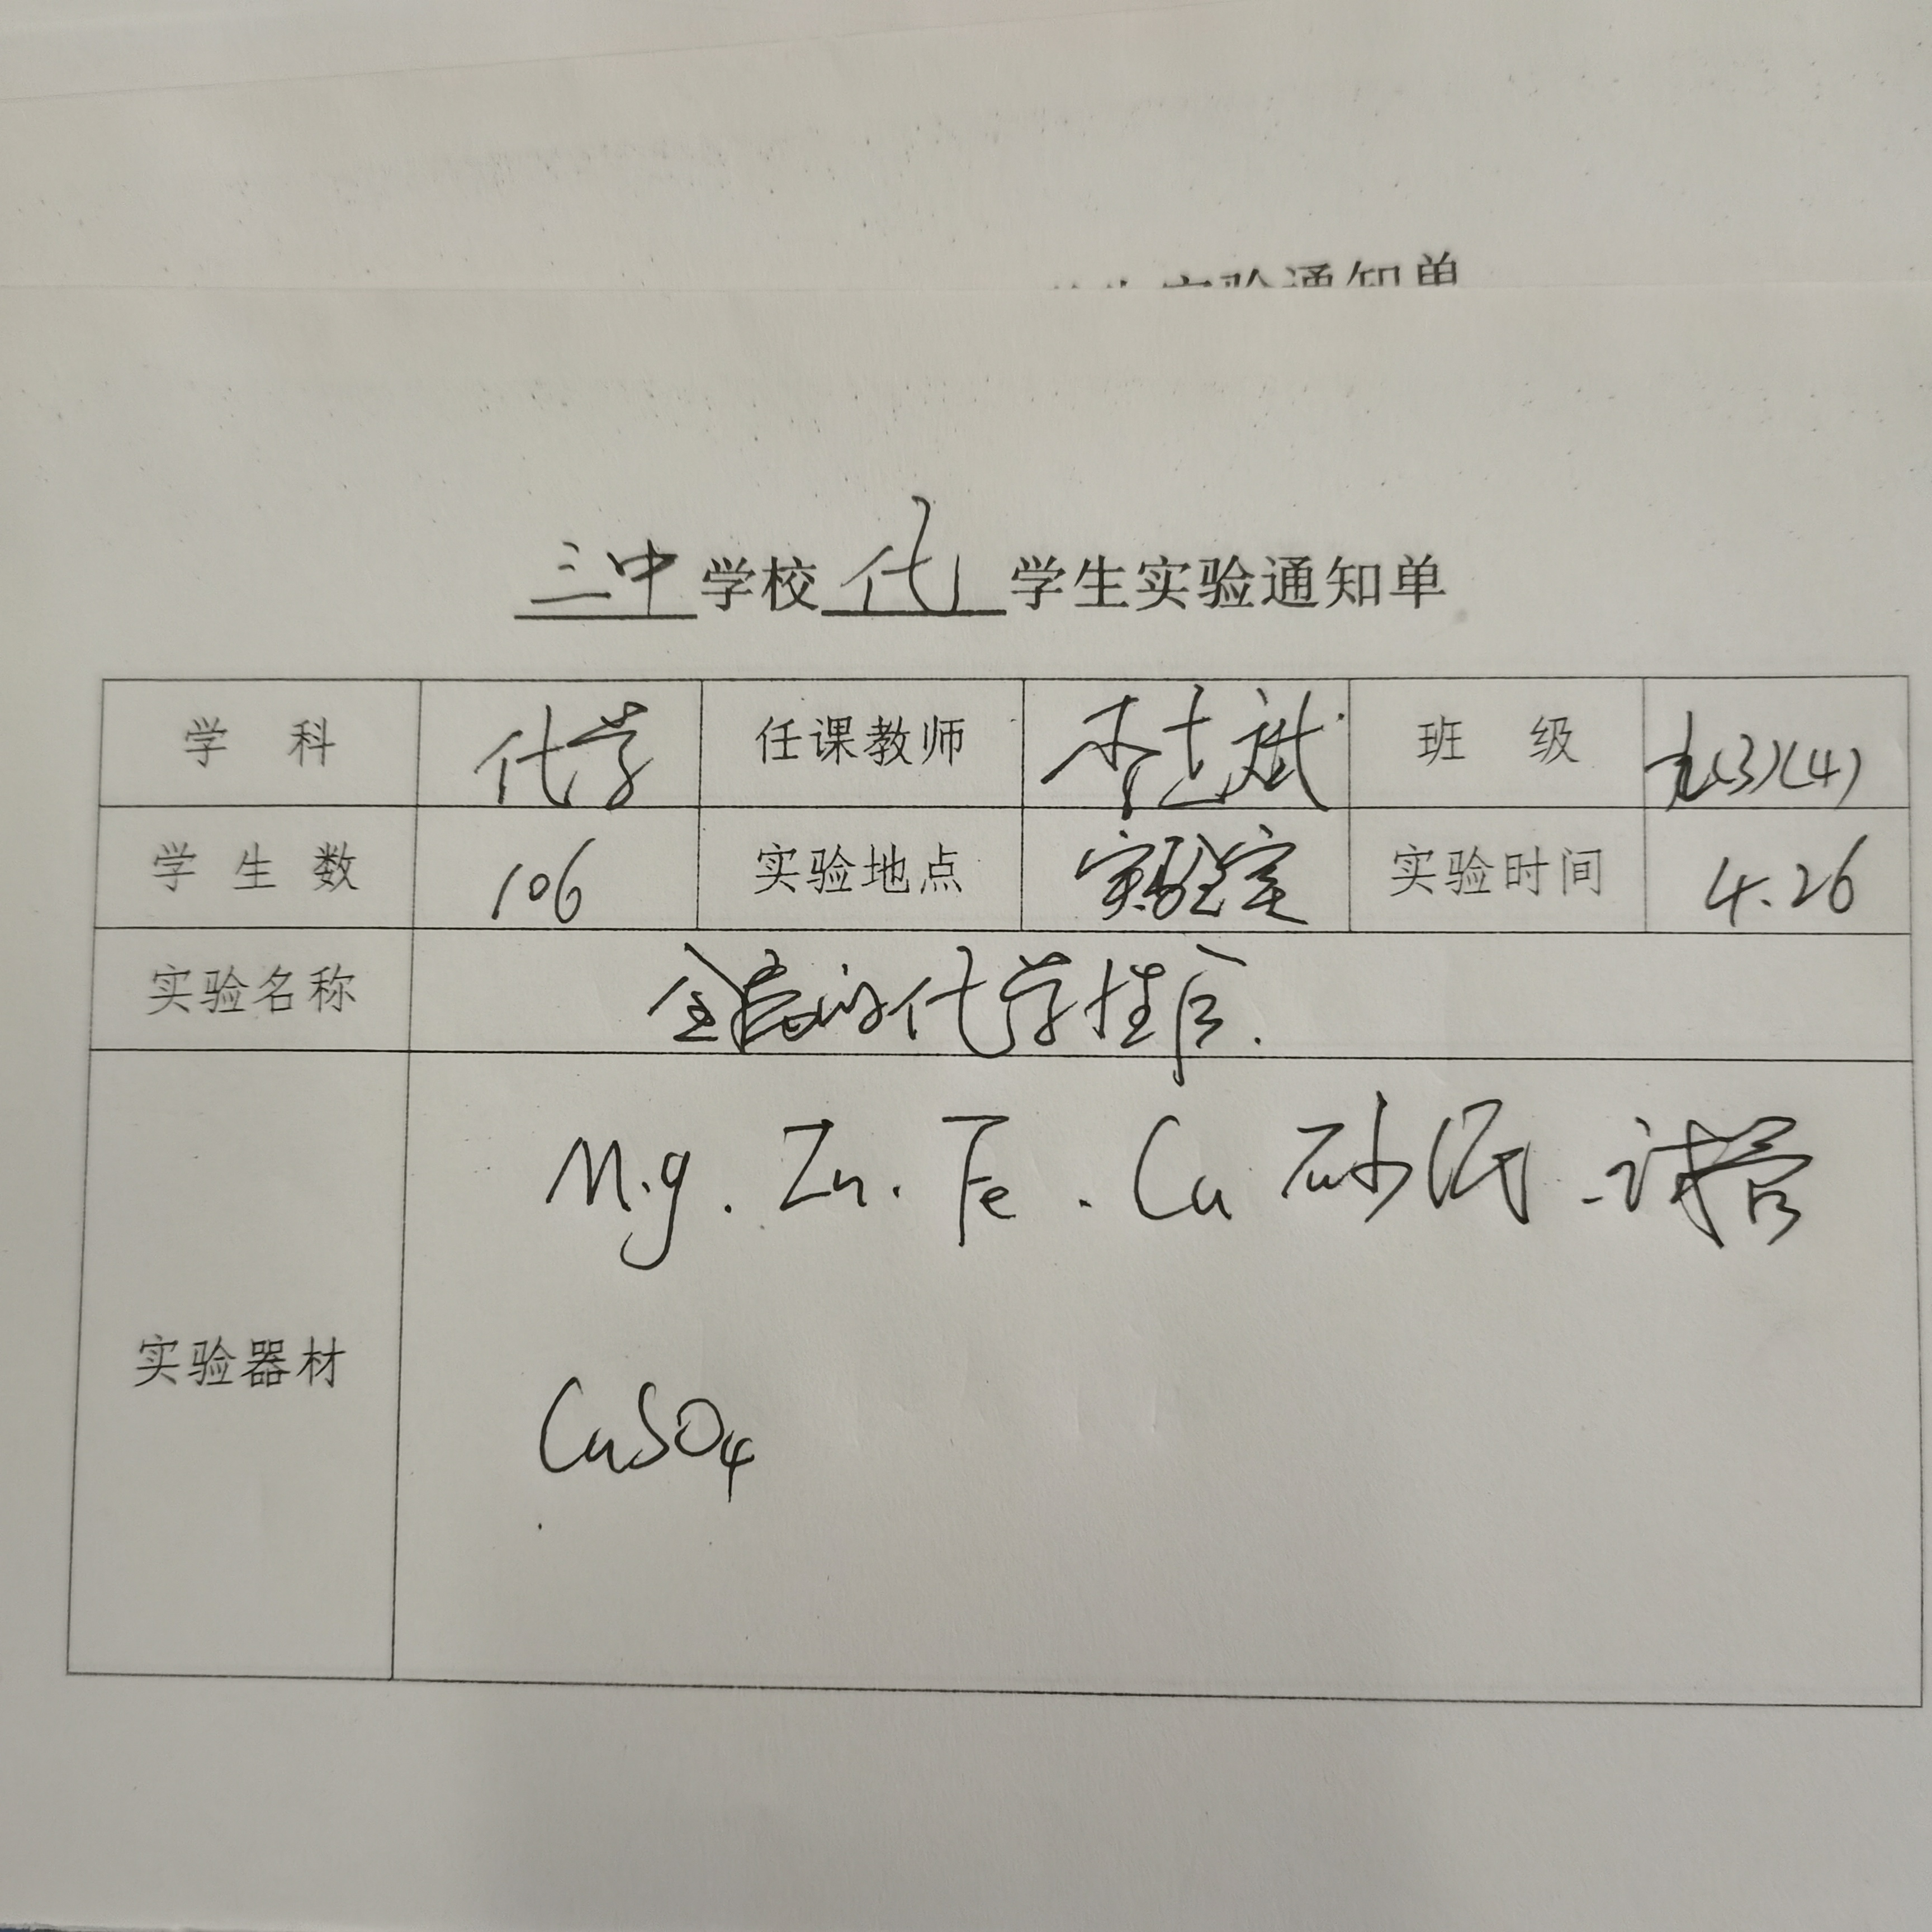 学生实验通知单
三中学校化学生实验通知单
学科 化学 任课教师 李志斌 班级 九(3)(4)
学生数 106 实验地点 实验室 实验时间 4.26
实验名称 金属的化学性质.
Mg. Zn. Fe. Cu 砂纸、试管
实验器材
CuSO₄